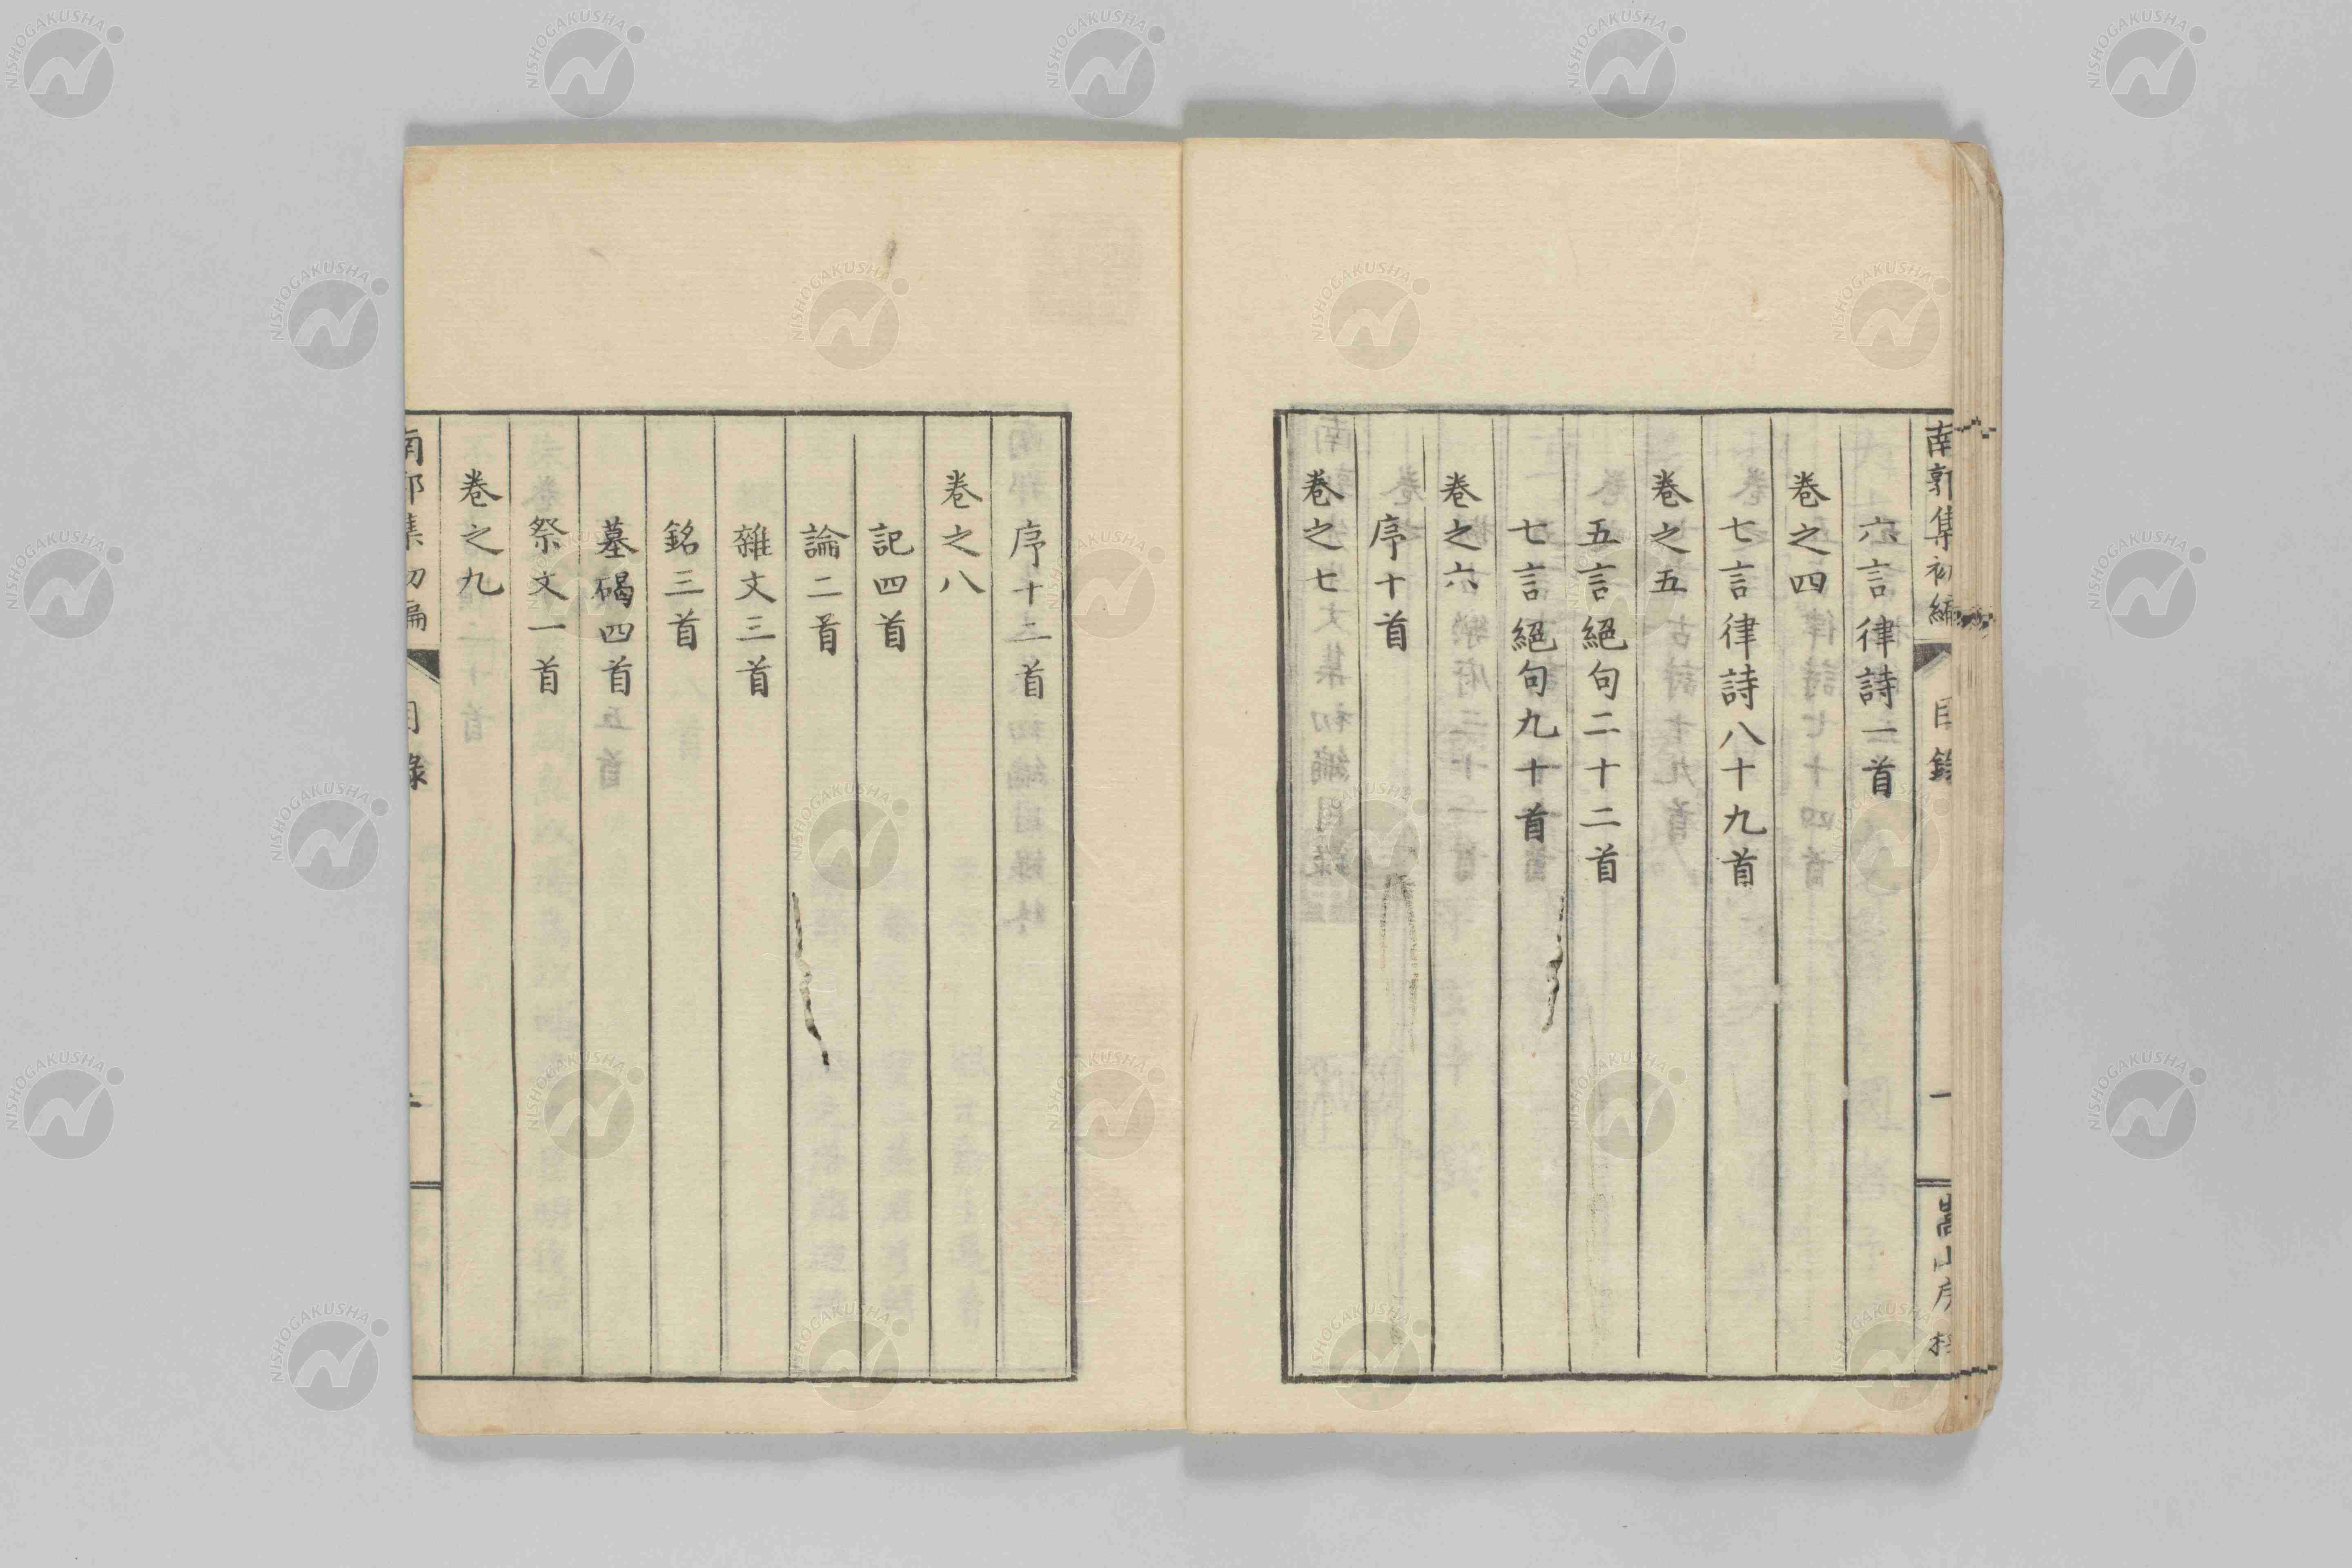 南郭集初編 目錄 一 嵩山房
六言律詩二首
卷之四
七言律詩八十九首
卷之五
五言絕句二十二首
七言絕句九十首
卷之六
序十首
卷之七
序十二首
卷之八
記四首
論二首
雜文三首
銘三首
墓碣四首
祭文一首
卷之九
南郭集初編 目錄 二